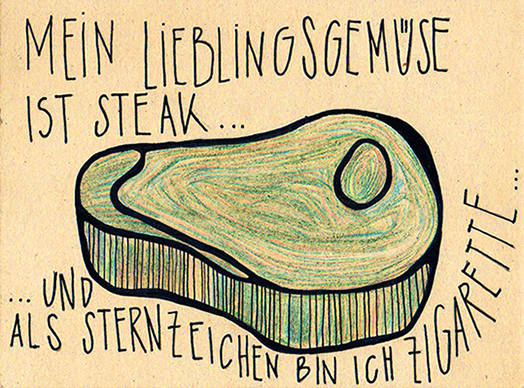 MEIN LIEBLINGSGEMÜSE
IST STEAK...
...UND
ALS STERNZEICHEN BIN ICH ZIGARETTE...